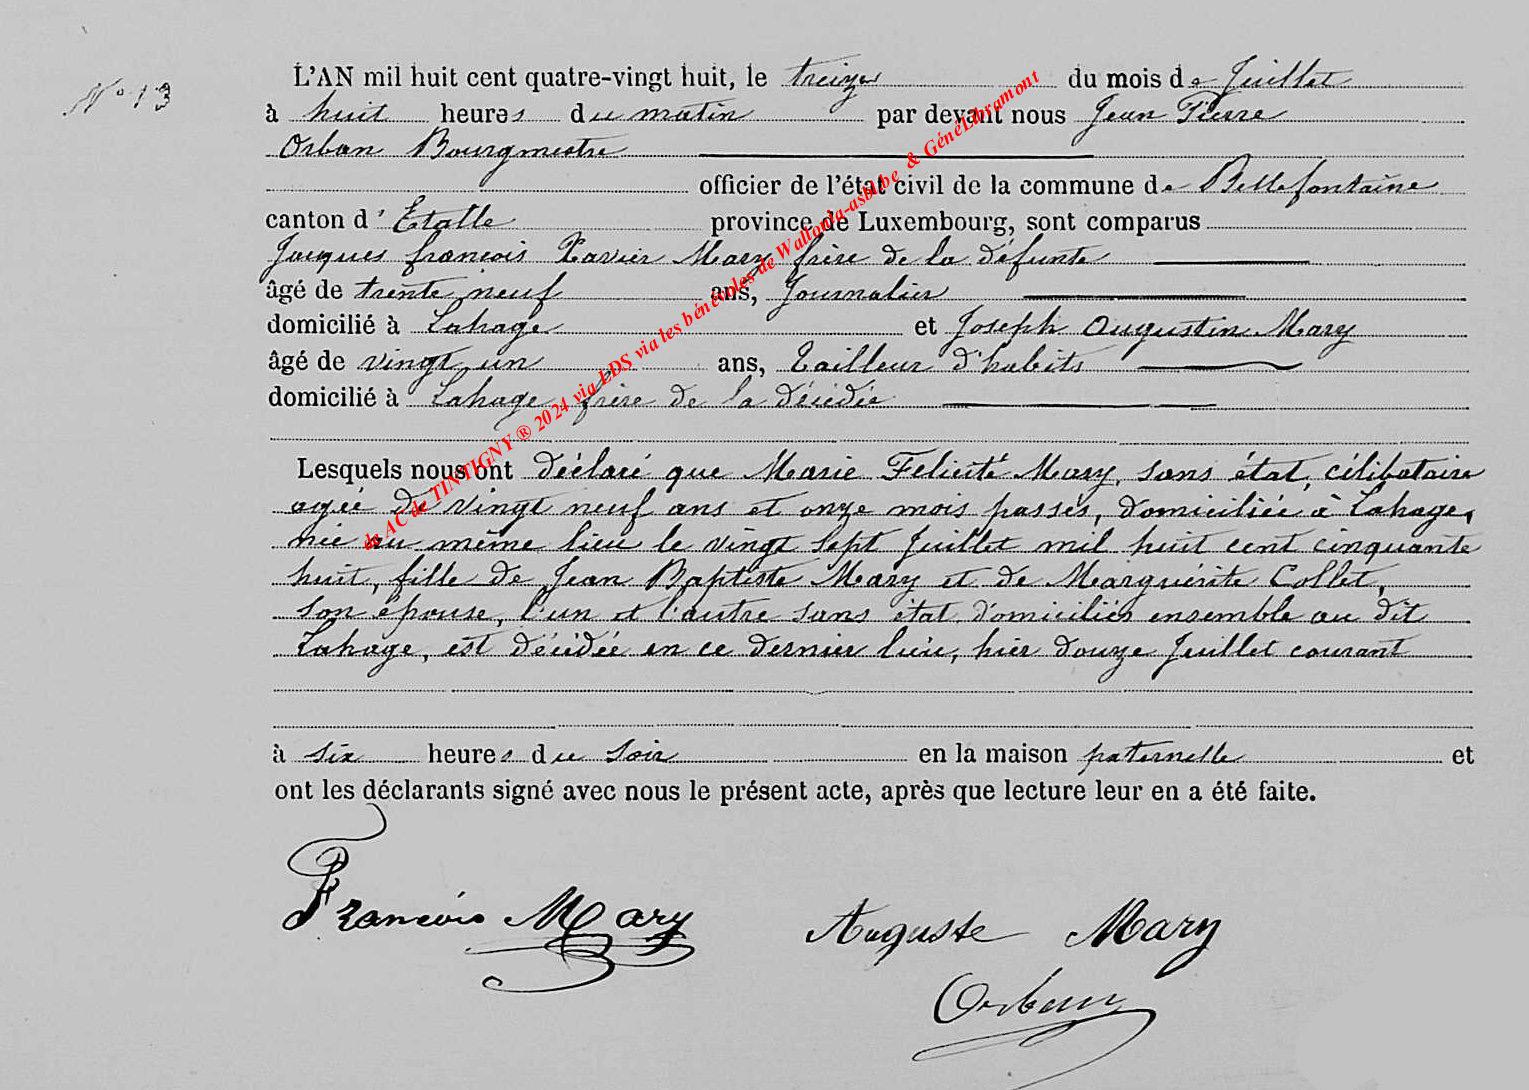 N° 13
L'AN mil huit cent quatre-vingt huit, le treize du mois de Juillet
à huit heures du matin par devant nous Jean Pierre
Orban Bourgmestre
officier de l'état civil de la commune de Bellefontaine
canton d'Etalle province de Luxembourg, sont comparus
Jacques françois Xavier Mary frère de la défunte
âgé de trente neuf ans, Journalier
domicilié à Lahage et Joseph Augustin Mary
âgé de vingt un ans, Tailleur d'habits
domicilié à Lahage frère de la décédée
Lesquels nous ont déclaré que Marie Felicité Mary, sans état, célibataire
agée de vingt neuf ans et onze mois passés, domiciliée à Lahage,
née au même lieu le vingt sept Juillet mil huit cent cinquante
huit, fille de Jean Baptiste Mary et de Marguérite Collet,
son épouse, l'un et l'autre sans état domiciliés ensemble au dit
Lahage, est décédée en ce dernier lieu, hier douze Juillet courant
à six heures du soir en la maison paternelle et
ont les déclarants signé avec nous le présent acte, après que lecture leur en a été faite.
François Mary Auguste Mary
Orban
de AC de TINTIGNY ® 2024 via LDS via les bénévoles de Wallonia-asbl.be & GénéLibramont